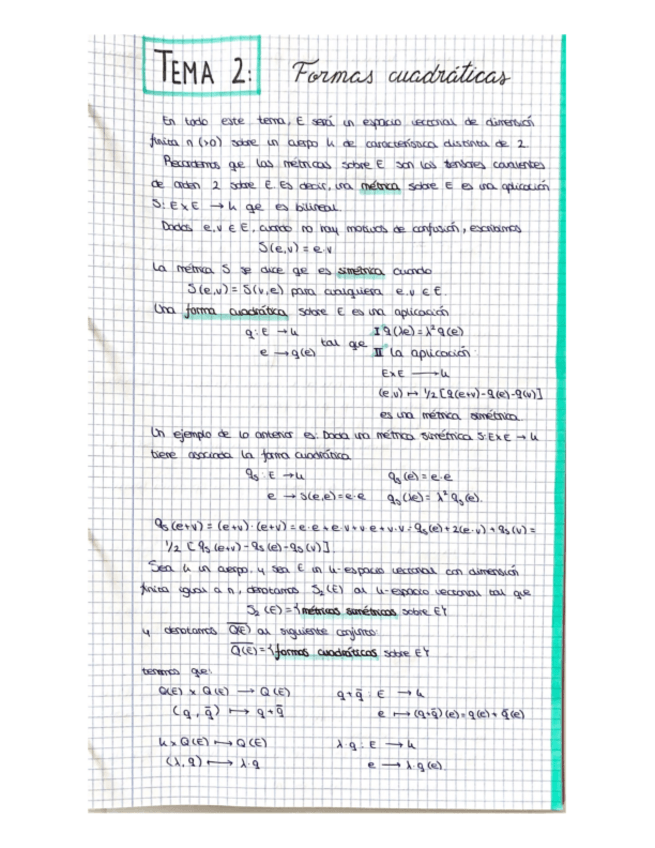 TEMA 2: Formas cuadráticas
En todo este tema, E será un espacio vectorial de dimensión
finita n (>0) sobre un cuerpo k de característica distinta de 2.
Recordemos que las métricas sobre E son los tensores covariantes
de orden 2 sobre E. Es decir, una métrica sobre E es una aplicación
S: E x E → k qe es bilineal.
Dados e, v ∈ E, cuando no hay motivos de confusión, escribimos
S(e,v) = e·v
La métrica S se dice qe es simétrica cuando
S(e,v) = S(v,e) para cualquiera e, v ∈ E.
Una forma cuadrática sobre E es una aplicación
q: E → k tal que I q(λe) = λ² q(e)
e → q(e) II la aplicación:
E x E → k
(e,v) ↦ 1/2 [q(e+v) - q(e) - q(v)]
es una métrica simétrica.
Un ejemplo de lo anterior es: Dada una métrica simétrica S: E x E → k
tiene asociada la forma cuadrática
qs : E → k qs(e) = e·e
e → S(e,e) = e·e qs(λe) = λ² qs(e).
qs(e+v) = (e+v)·(e+v) = e·e + e·v + v·e + v·v = qs(e) + 2(e·v) + qs(v) =
1/2 [qs(e+v) - qs(e) - qs(v)].
Sea k un cuerpo, y sea E un k-espacio vectorial con dimensión
finita igual a n, denotamos S₂(E) al k-espacio vectorial tal que
S₂(E) = {métricas simétricas sobre E}
y denotamos Q(E) al siguiente conjunto:
Q(E) = {formas cuadráticas sobre E}
tenemos que:
Q(E) x Q(E) → Q(E) q+q̄ : E → k
(q, q̄) ↦ q+q̄ e ↦ (q+q̄)(e) = q(e) + q̄(e)
k x Q(E) ↦ Q(E) λ·q : E → k
(λ, q) ↦ λ·q e → λ·q(e).